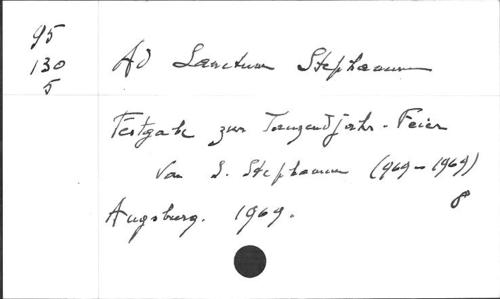 95
130
5
Ad Sanctum Stephanum
Festgabe zur Tausendjahr-Feier
von S. Stephanum (969-1969)
8
Augsburg. 1969.